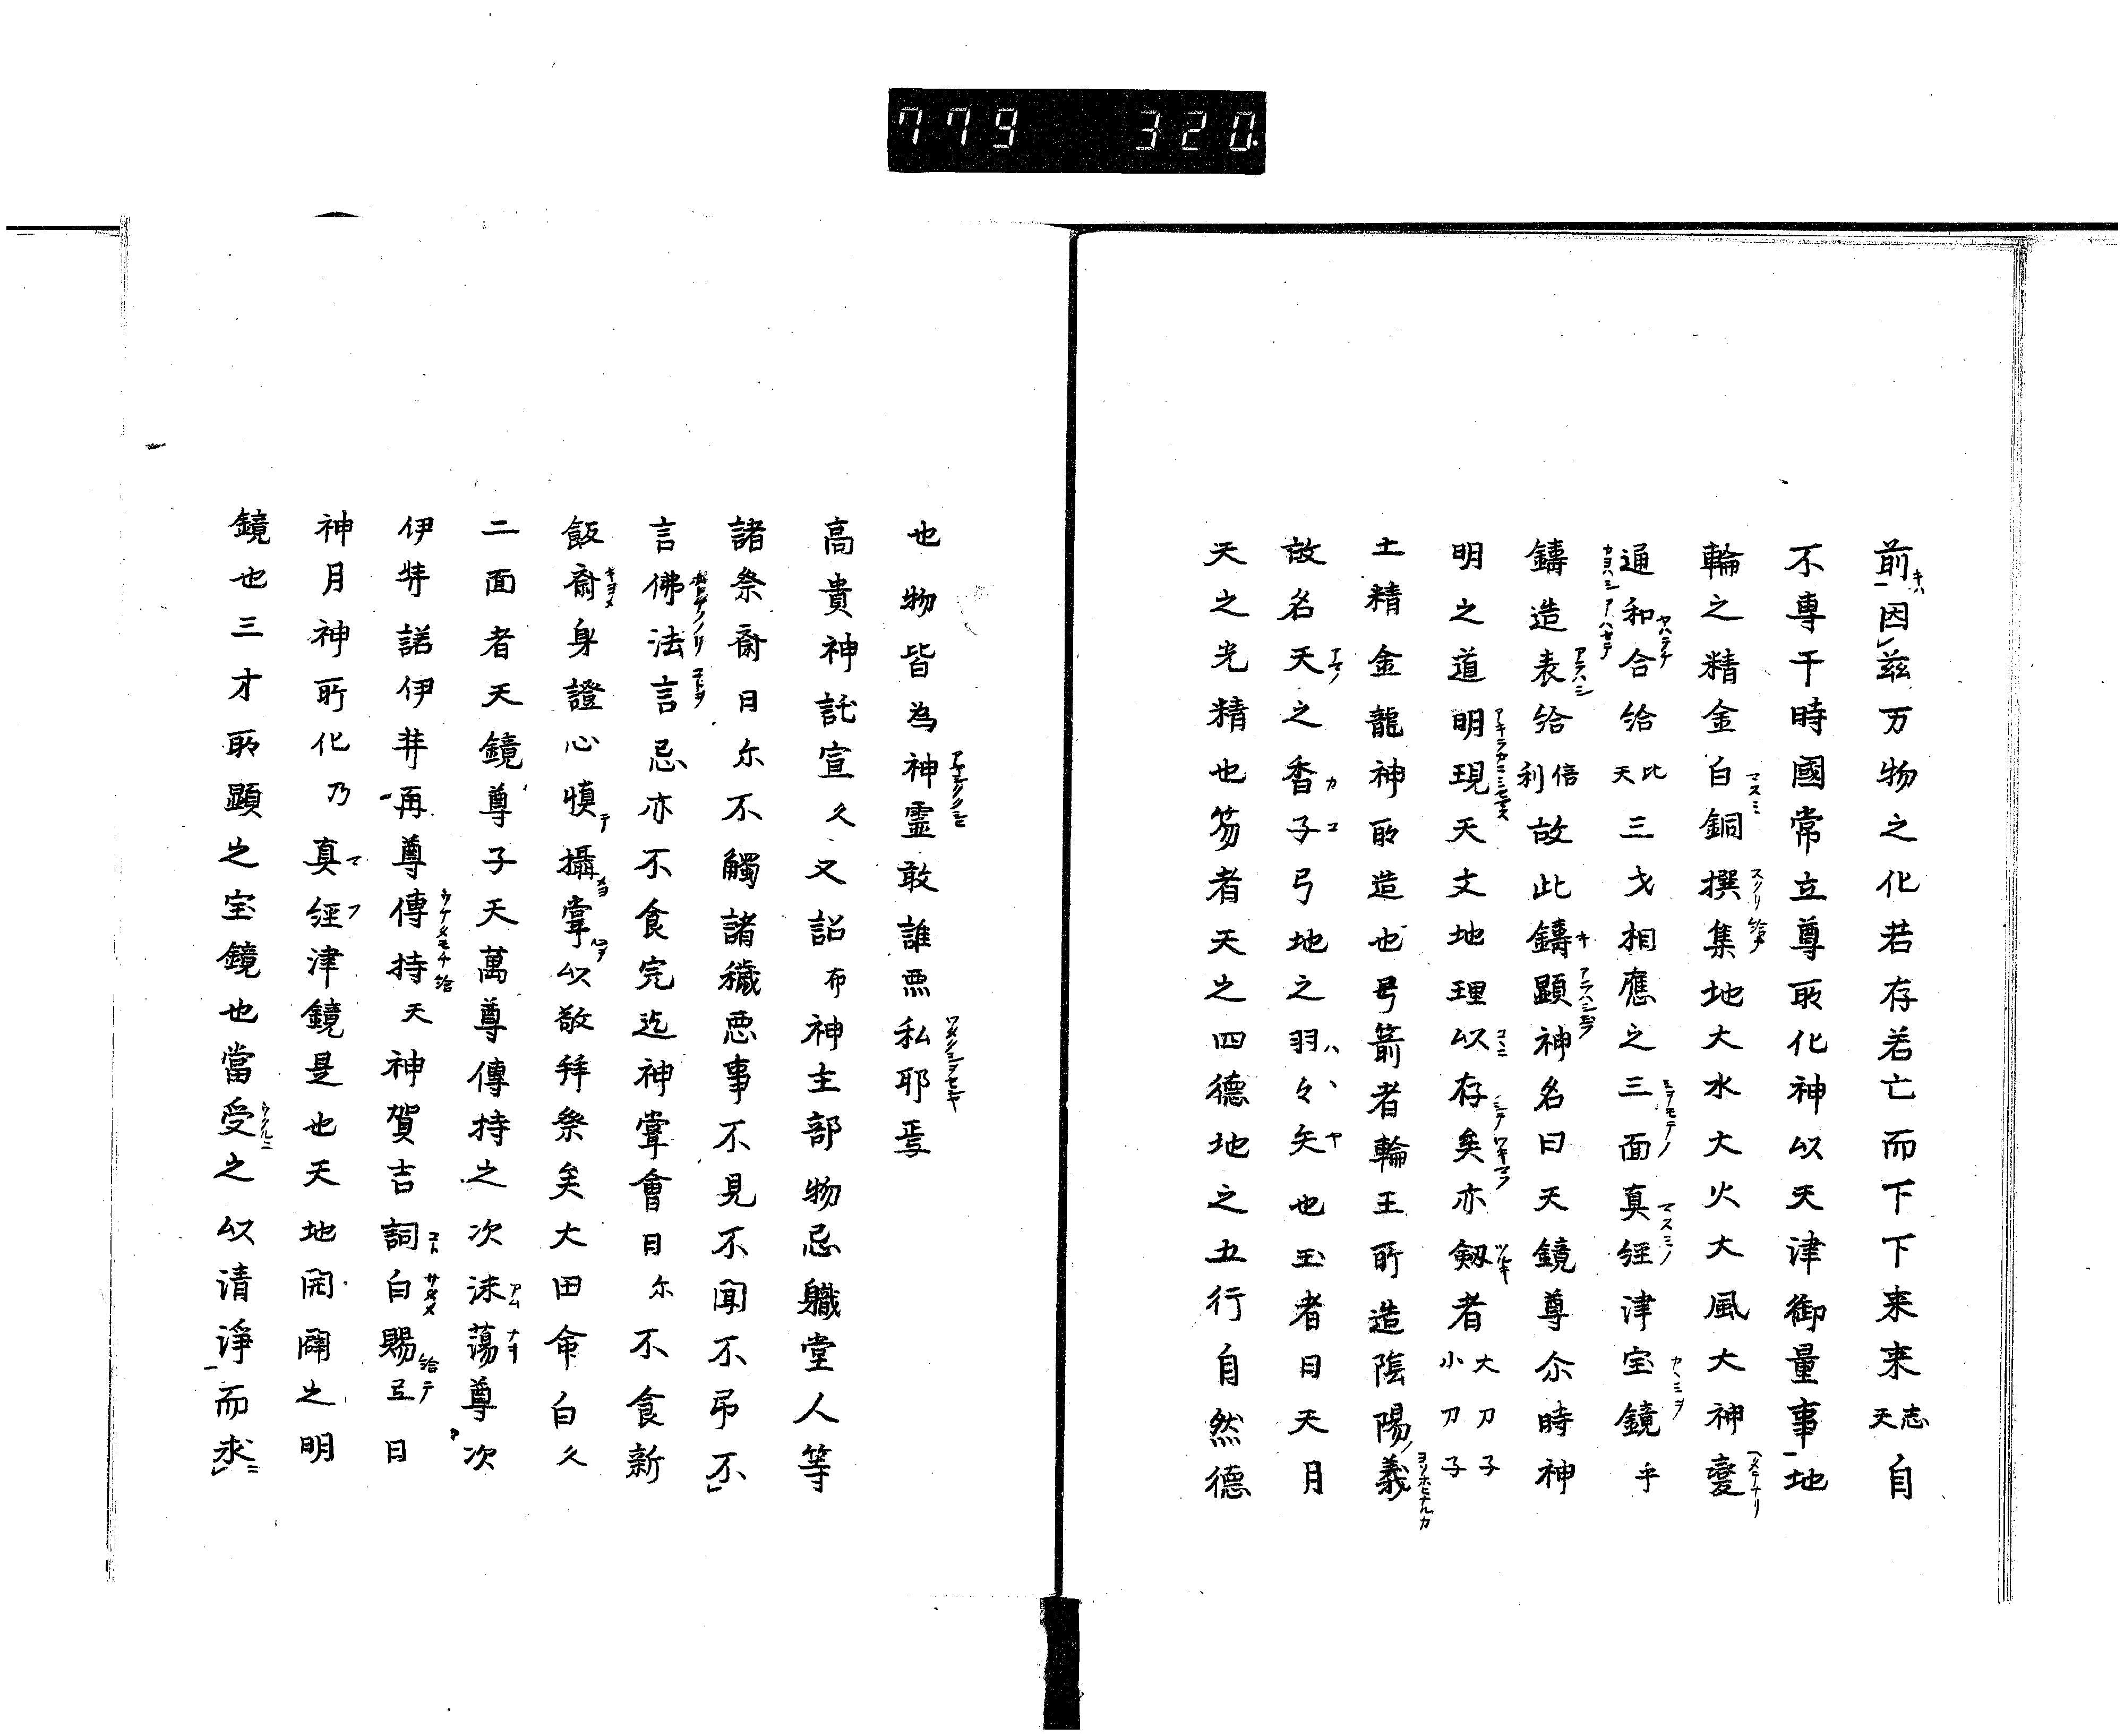 779 320
前因兹万物之化若存若亡而下下来来志天自
不專干時國常立尊所化神以天津御量事地
輪之精金白銅撰集地大水大火大風大神變
通和合給比天三才相應之三面真經津宝鏡乎
鑄造表給倍利故此鑄顕神名曰天鏡尊尒時神
明之道明現天文地理以存矣亦剱者大刀子小刀子
土精金龍神所造也弓箭者輪王所造隂陽義
故名天之香子弓地之羽々矢也玉者日天月
天之光精也笏者天之四德地之五行自然德
也物皆為神霊敢誰悪私耶焉
高貴神託宣久又詔布神主部物忌軄堂人等
諸祭斎日尓不觸諸穢悪事不見不聞不吊不
言佛法言忌亦不食宍迄神甞會日尓不食新
飯斎身證心慎攝掌以敬拜祭矣大田命白久
二面者天鏡尊子天萬尊傳持之次沫蕩尊次
伊弉諾伊弉再尊傳持天神賀吉詞白賜弖日
神月神所化乃真經津鏡是也天地開闢之明
鏡也三才所顕之宝鏡也當受之以清浄而求